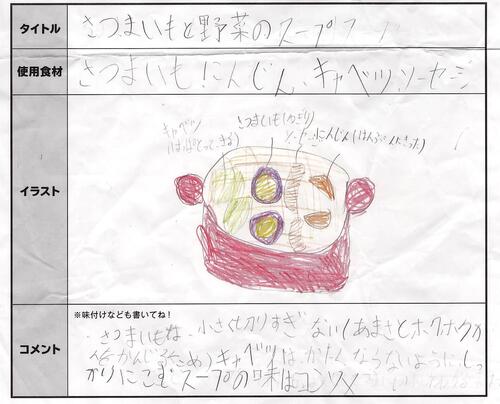 タイトル
さつまいもと野菜のスープ
使用食材
さつまいも にんじん、キャベツ、ソーセージ
イラスト
キャベツ さつまいも(わぎり)
ソーセージ にんじん
※味付けなども書いてね!
コメント
さつまいもは、小さく切りすぎない(あまさとホクホクか
んをかんじるため)キャベツは、かたくならないように、しっ
かりにこむ スープの味はコンソメ